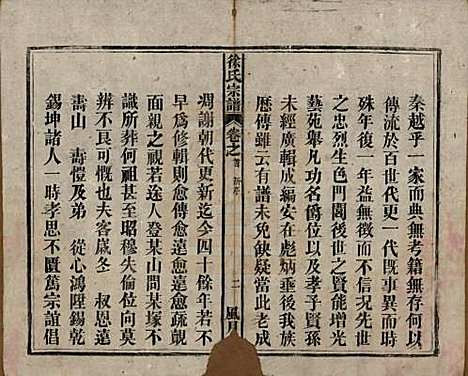 秦越乎一家而典無考籍無存何以
傳流於百世代更一代既事異而時
殊年後一年益無徵而不信況先世
之忠烈生色門閭後世之賢能增光
藝苑舉凡功名爵位以及孝子賢孫
未經廣輯成編安在彪炳垂後我族
曆傳雖云有譜未免缺疑當此老成
徐氏宗譜
卷之首
二
凋謝朝代更新迄今四十餘年若不
早為修輯則愈傳愈遠愈疏覿
面親之視若途人登某山問某塚不
識所葬何祖甚至昭穆失倫南向莫
辨不良可慨也夫客歲冬 叔恩遠
壽山 壽愷及弟 從心鴻陞錫乾
錫坤諸人一時孝思不匱篤宗誼倡